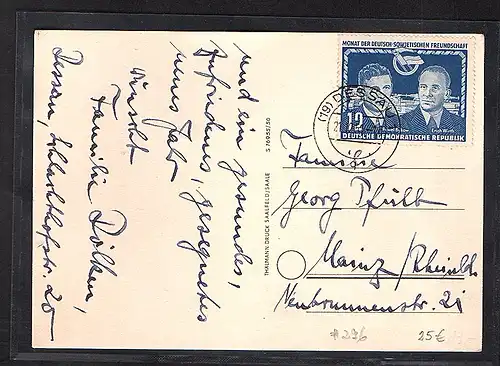 und ein gesundes,
zufriedenes, gesegnetes
neues Jahr
wünscht
Familie Dölken,
Dessau, Schlachthofstr. 20
THAUMANN-DRUCK SAALFELD/SAALE
S 7698S/36
MONAT DER DEUTSCH-SOWJETISCHEN FREUNDSCHAFT
12
Erich Wirth
DEUTSCHE DEMOKRATISCHE REPUBLIK
(19) DESSAU
Familie
Georg Pfütt
Mainz/Rheinld.
Neubrunnenstr. 21
#296
25€